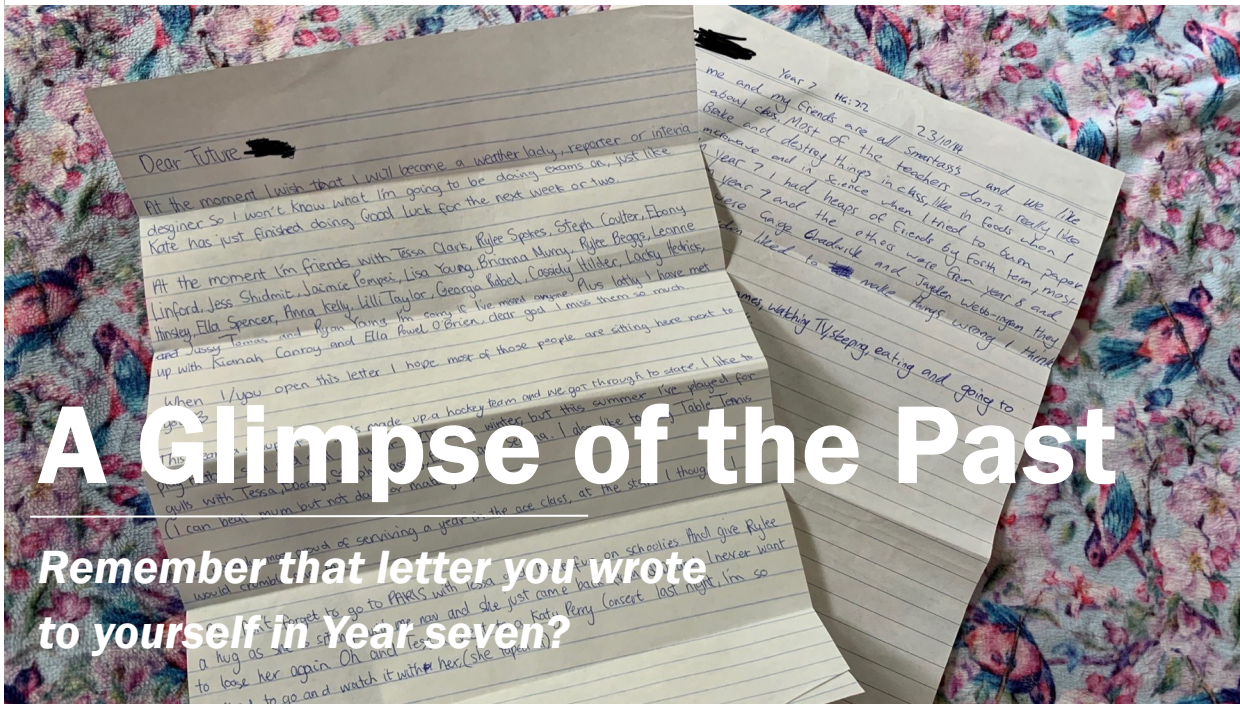 Dear Future
At the moment I wish that I will become a weather lady, reporter or interia
desginer so I won't know what I'm going to be doing exams on, just like
Kate has just finished doing. Good luck for the next week or two.
At the moment I'm friends with Tessa Clark, Rylee Spokes, Steph Coulter, Ebony
Linford, Jess Shidmit, Jaimie Pompei, Lisa Young, Brianna Muny, Rylee Beggs, Leonne
Hinsley, Ella Spencer, Anna Kelly, Lilli Taylor, Georga Rabel, Cassady Hilder, Lacky Hedricks,
and Jussy Tomas and Ryan Young I'm sorry is I've mised anyone. Plus latly I have met
up with Kianah Conroy and Ella Powel O'Brien, dear god I miss them so much
When I/you open this letter I hope most of those people are sitting here next to
you <3
This made up a hockey team and we got through to state. I like to
winter, but this summer I've played for
gulls with Tessa, I also like to Table Tennis
(I can beat mum but not dad
proud of serviving a year in the ace class, at the start I thought I
would crumble
forget to go to PARIS with Tessa on schoolies. And give Rylee
a hug as she now and she just came back I never want
to loose her again. Oh and Tess Katy Perry Consert last night, I'm so
to go and watch it with her. (she taped
Year 7 HG:22
23/10/14
me and my friends are all smartass's and we like
about class. Most of the teachers don't really like
Bake and destroy things in class, like in foods when I
microwave and in science when I tried to burn paper
year 7 I had heaps of friends by forth term, most
year 7 and the others were from year 8 and
were Gage Chadwick and Jayden Webb-ingam they
liked to make things wrong. I think
watching TV, sleeping, eating and going to
A Glimpse of the Past
Remember that letter you wrote
to yourself in Year seven?